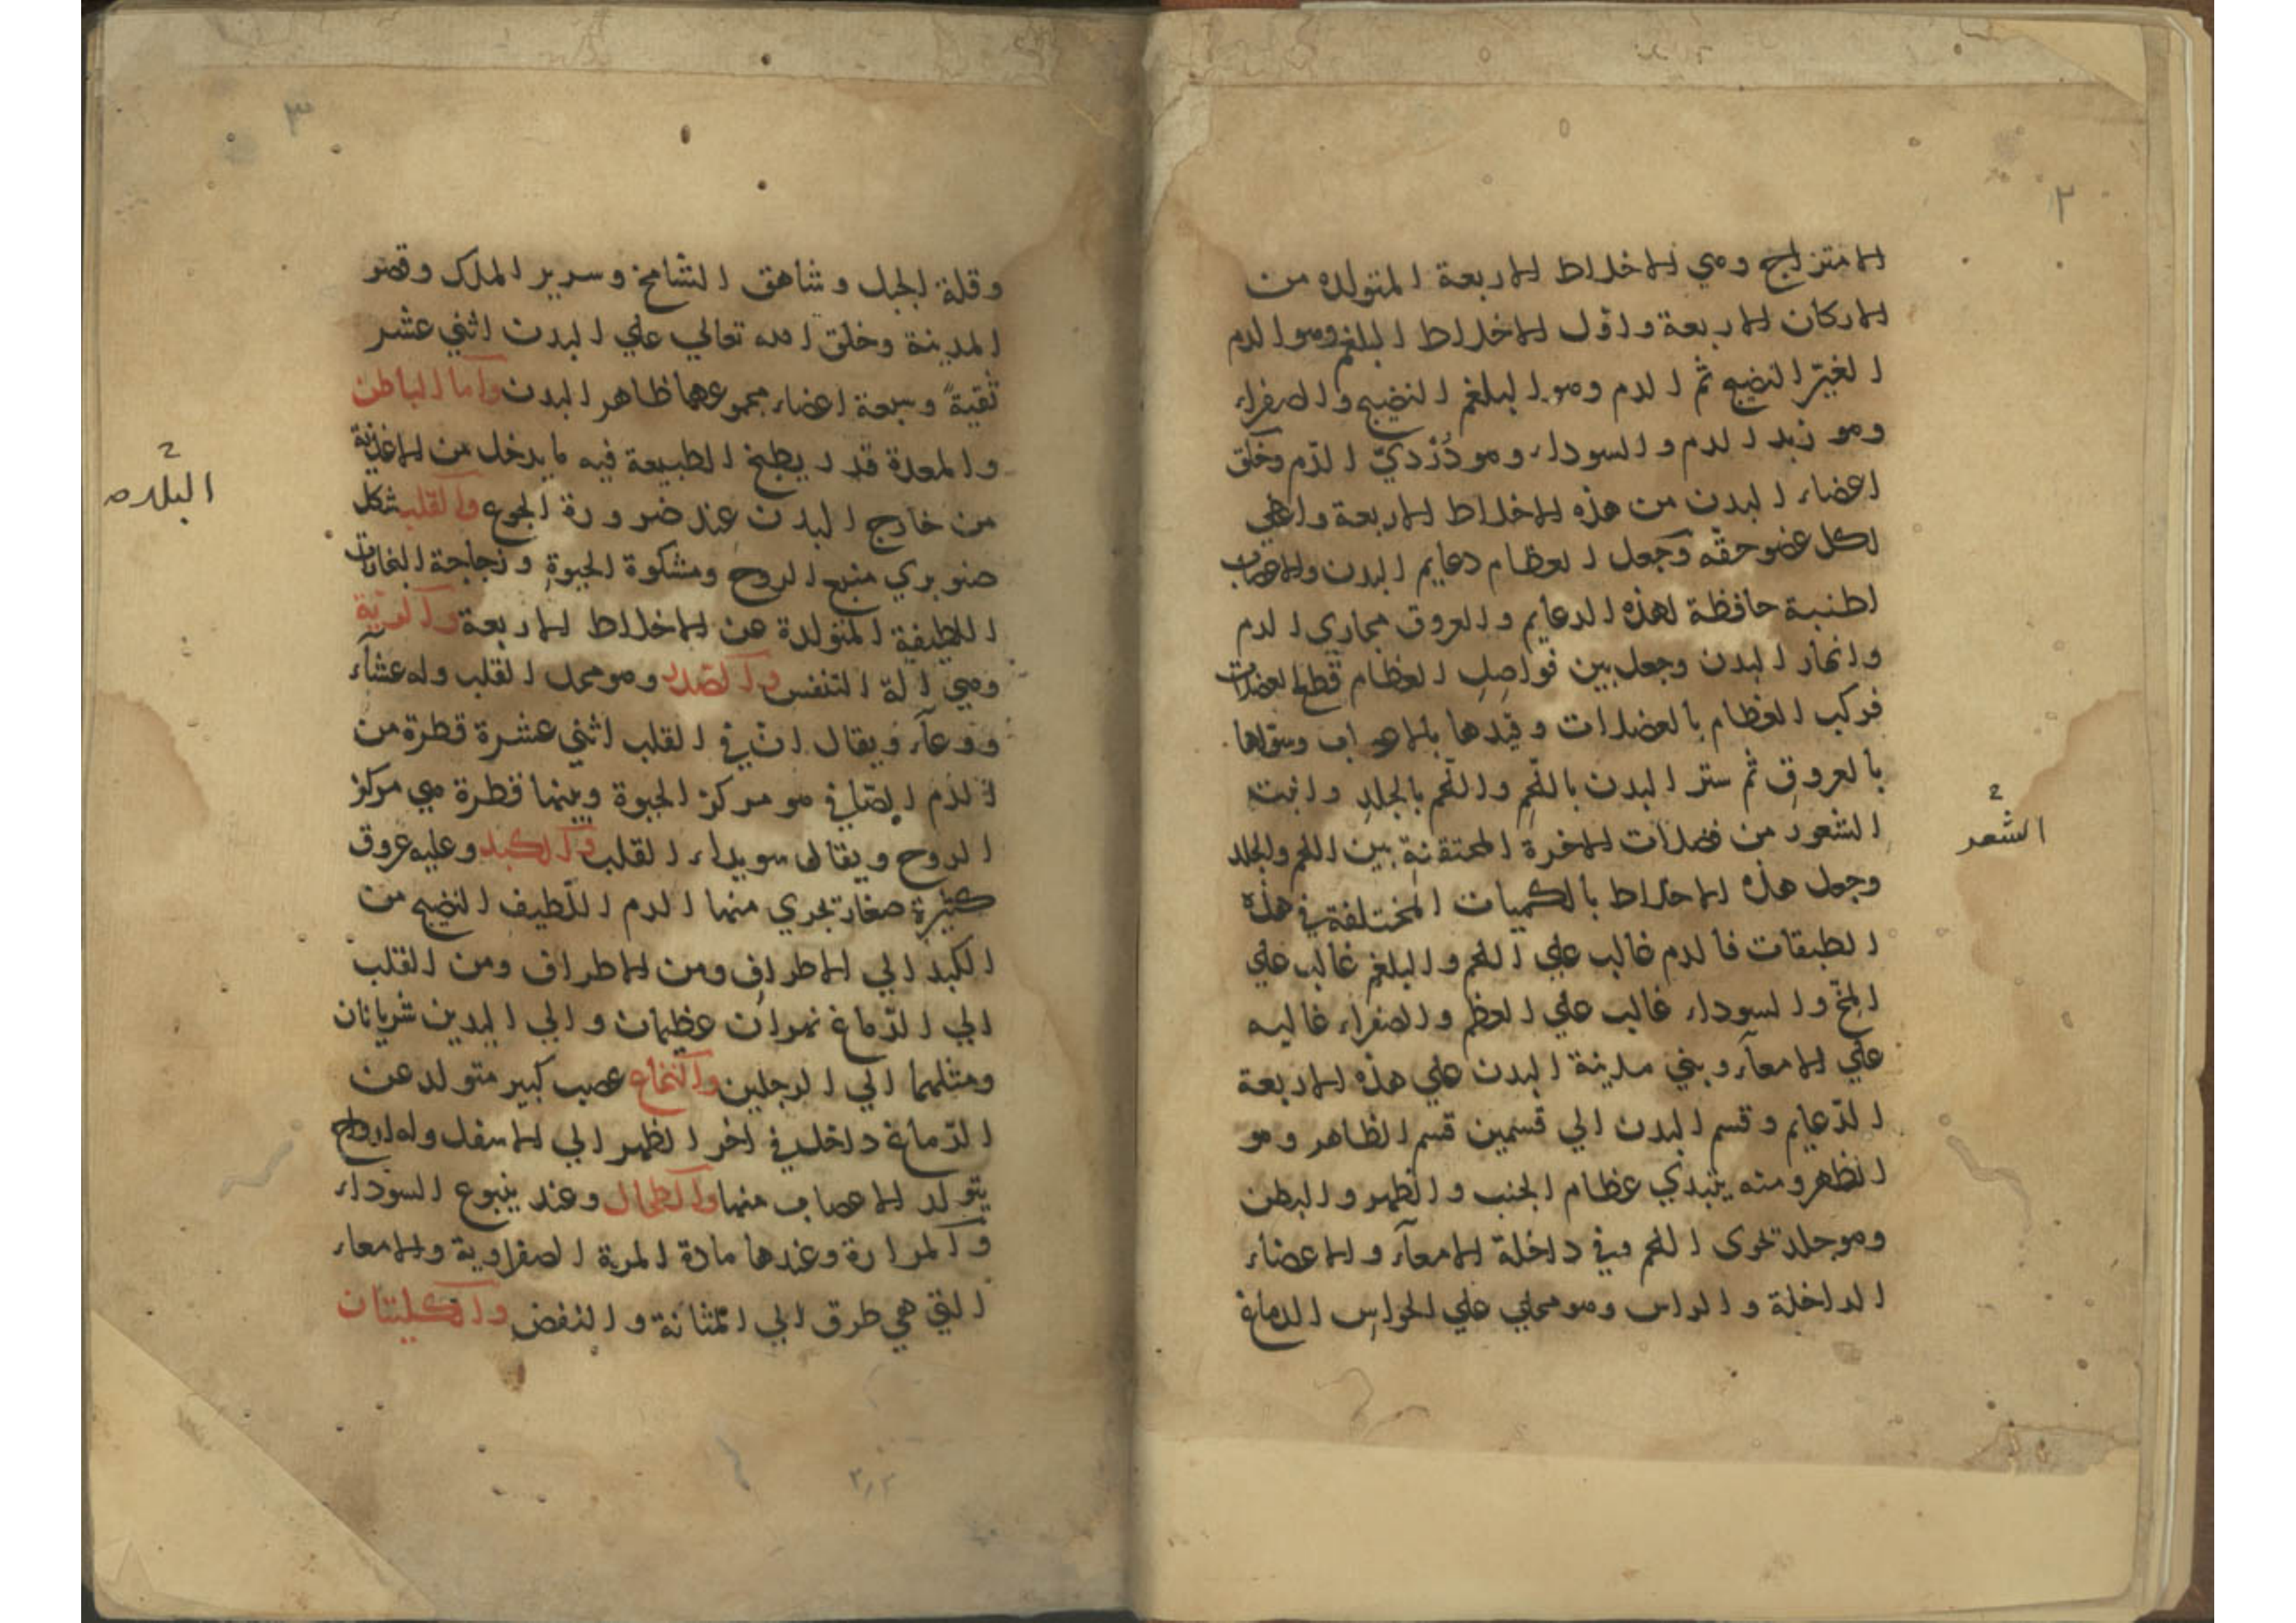 ٢
الامتزاج وهي الاخلاط الاربعة المتولده من
الاركان الاربعة واول الاخلاط البلغم وهو الدم
الغير النضيج ثم الدم وهو البلغم النضيج والصفراء
وهو زبد الدم والسوداء وهو دُرْديّ الدّم وخلق
اعضاء البدن من هذه الاخلاط الاربعة واعطي
لكل عضو حقه وجعل العظام دعايم البدن والاعصاب
اطنبة حافظة لهذه الدعايم والعروق مجاري الدم
وانهار البدن وجعل بين فواصل العظام قطع العضلات
فركب العظام بالعضلات وقيدها بالاعصاب وسقاها
بالعروق ثم ستر البدن باللّحم واللّحم بالجلد وانبت
الشعور من فضلات الابخرة المحتقنة بين اللحم والجلد
وجعل هذه الاخلاط بالكميات المختلفة في هذه
الطبقات فالدم غالب علي اللحم والبلغم غالب علي
المخّ والسوداء غالب علي العظم والصفراء غاليه
علي الامعآء وبني مدينة البدن علي هذه الاربعة
الدّعايم وقسم البدن الي قسمين قسم الظاهر وهو
الظهر ومنه يبتدي عظام الجنب والظهر والبطن
وهو جلد تحوى اللحم وفي داخلة الامعآء والاعضاء
الداخلة والراس وهو محلي علي الحواس الدماغ
الشعر
٣
وقلة الجبل وشاهق الشامخ وسرير الملك وقصر
المدينة وخلق الله تعالي علي البدن اثني عشر
ثقبةً وسبعة اعضاء مجموعهما ظاهر البدن واما الباطن
والمعدة قدر يطبخ الطبيعة فيه ما يدخل من الاغذية
من خارج البدن عند ضرورة الجوع والقلب شكل
صنوبري منبع الروح ومشكوة الحيوة وزجاجة البخارات
اللطيفة المتولدة عن الاخلاط الاربعة والرية
وهي الة التنفس والصدر وهو محل القلب وله عشآء
ووعآء ويقال انّ في القلب اثني عشرة قطرة من
الدم الصافي هو مركز الحيوة وبينها قطرة هي مركز
الروح ويقال سويداء القلب والكبد وعليه عروق
كثيرة صغار تجري منها الدم اللّطيف النضيج من
الكبد الي الاطراف ومن الاطراف ومن القلب
الي الدّماغ نهران عظيمان والي اليدين شريانان
ومثلهما الي الرجلين والنخاع عصب كبير متولد عن
الدّماغ داخل في اخر الظهر الي الاسفل وله ازواج
يتولد الاعصاب منها والطحال وعند ينبوع السوداء
والمرارة وعندها مادة المرة الصفراوية والامعاء
التي هي طرق الي المثانة والنفض والكليتان